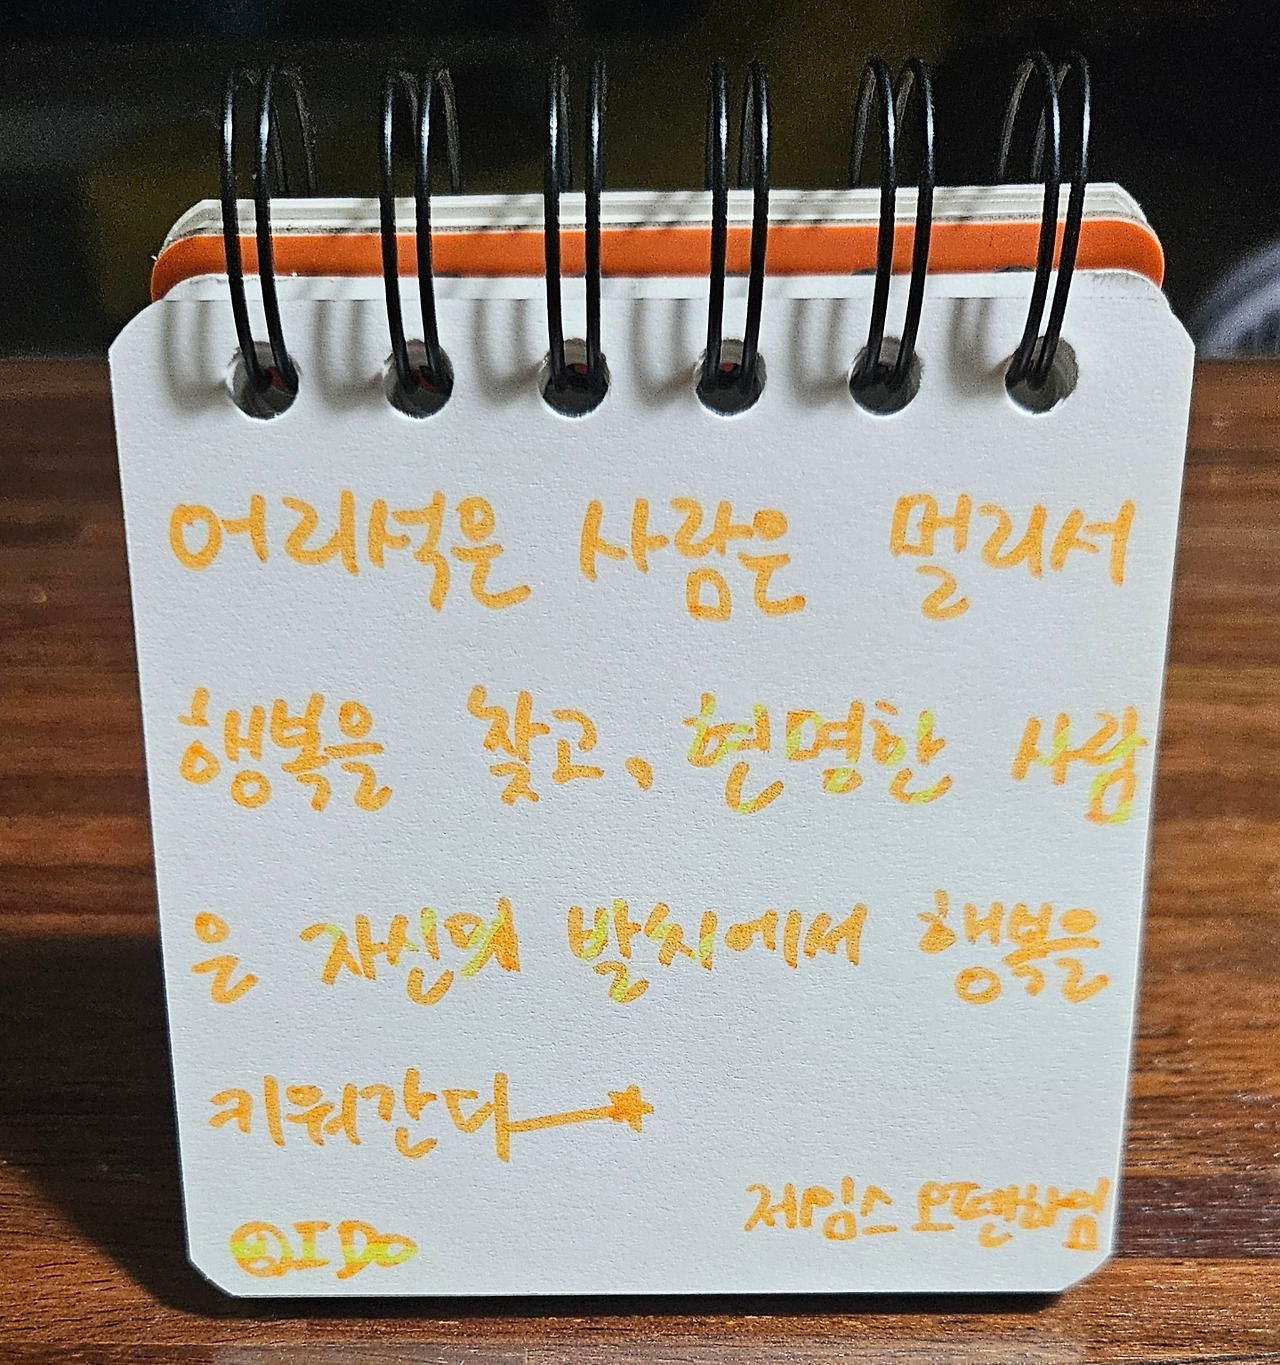 어리석은 사람은 멀리서
행복을 찾고, 현명한 사람
은 자신의 발치에서 행복을
키워간다
제임스 오펜하임
I Do